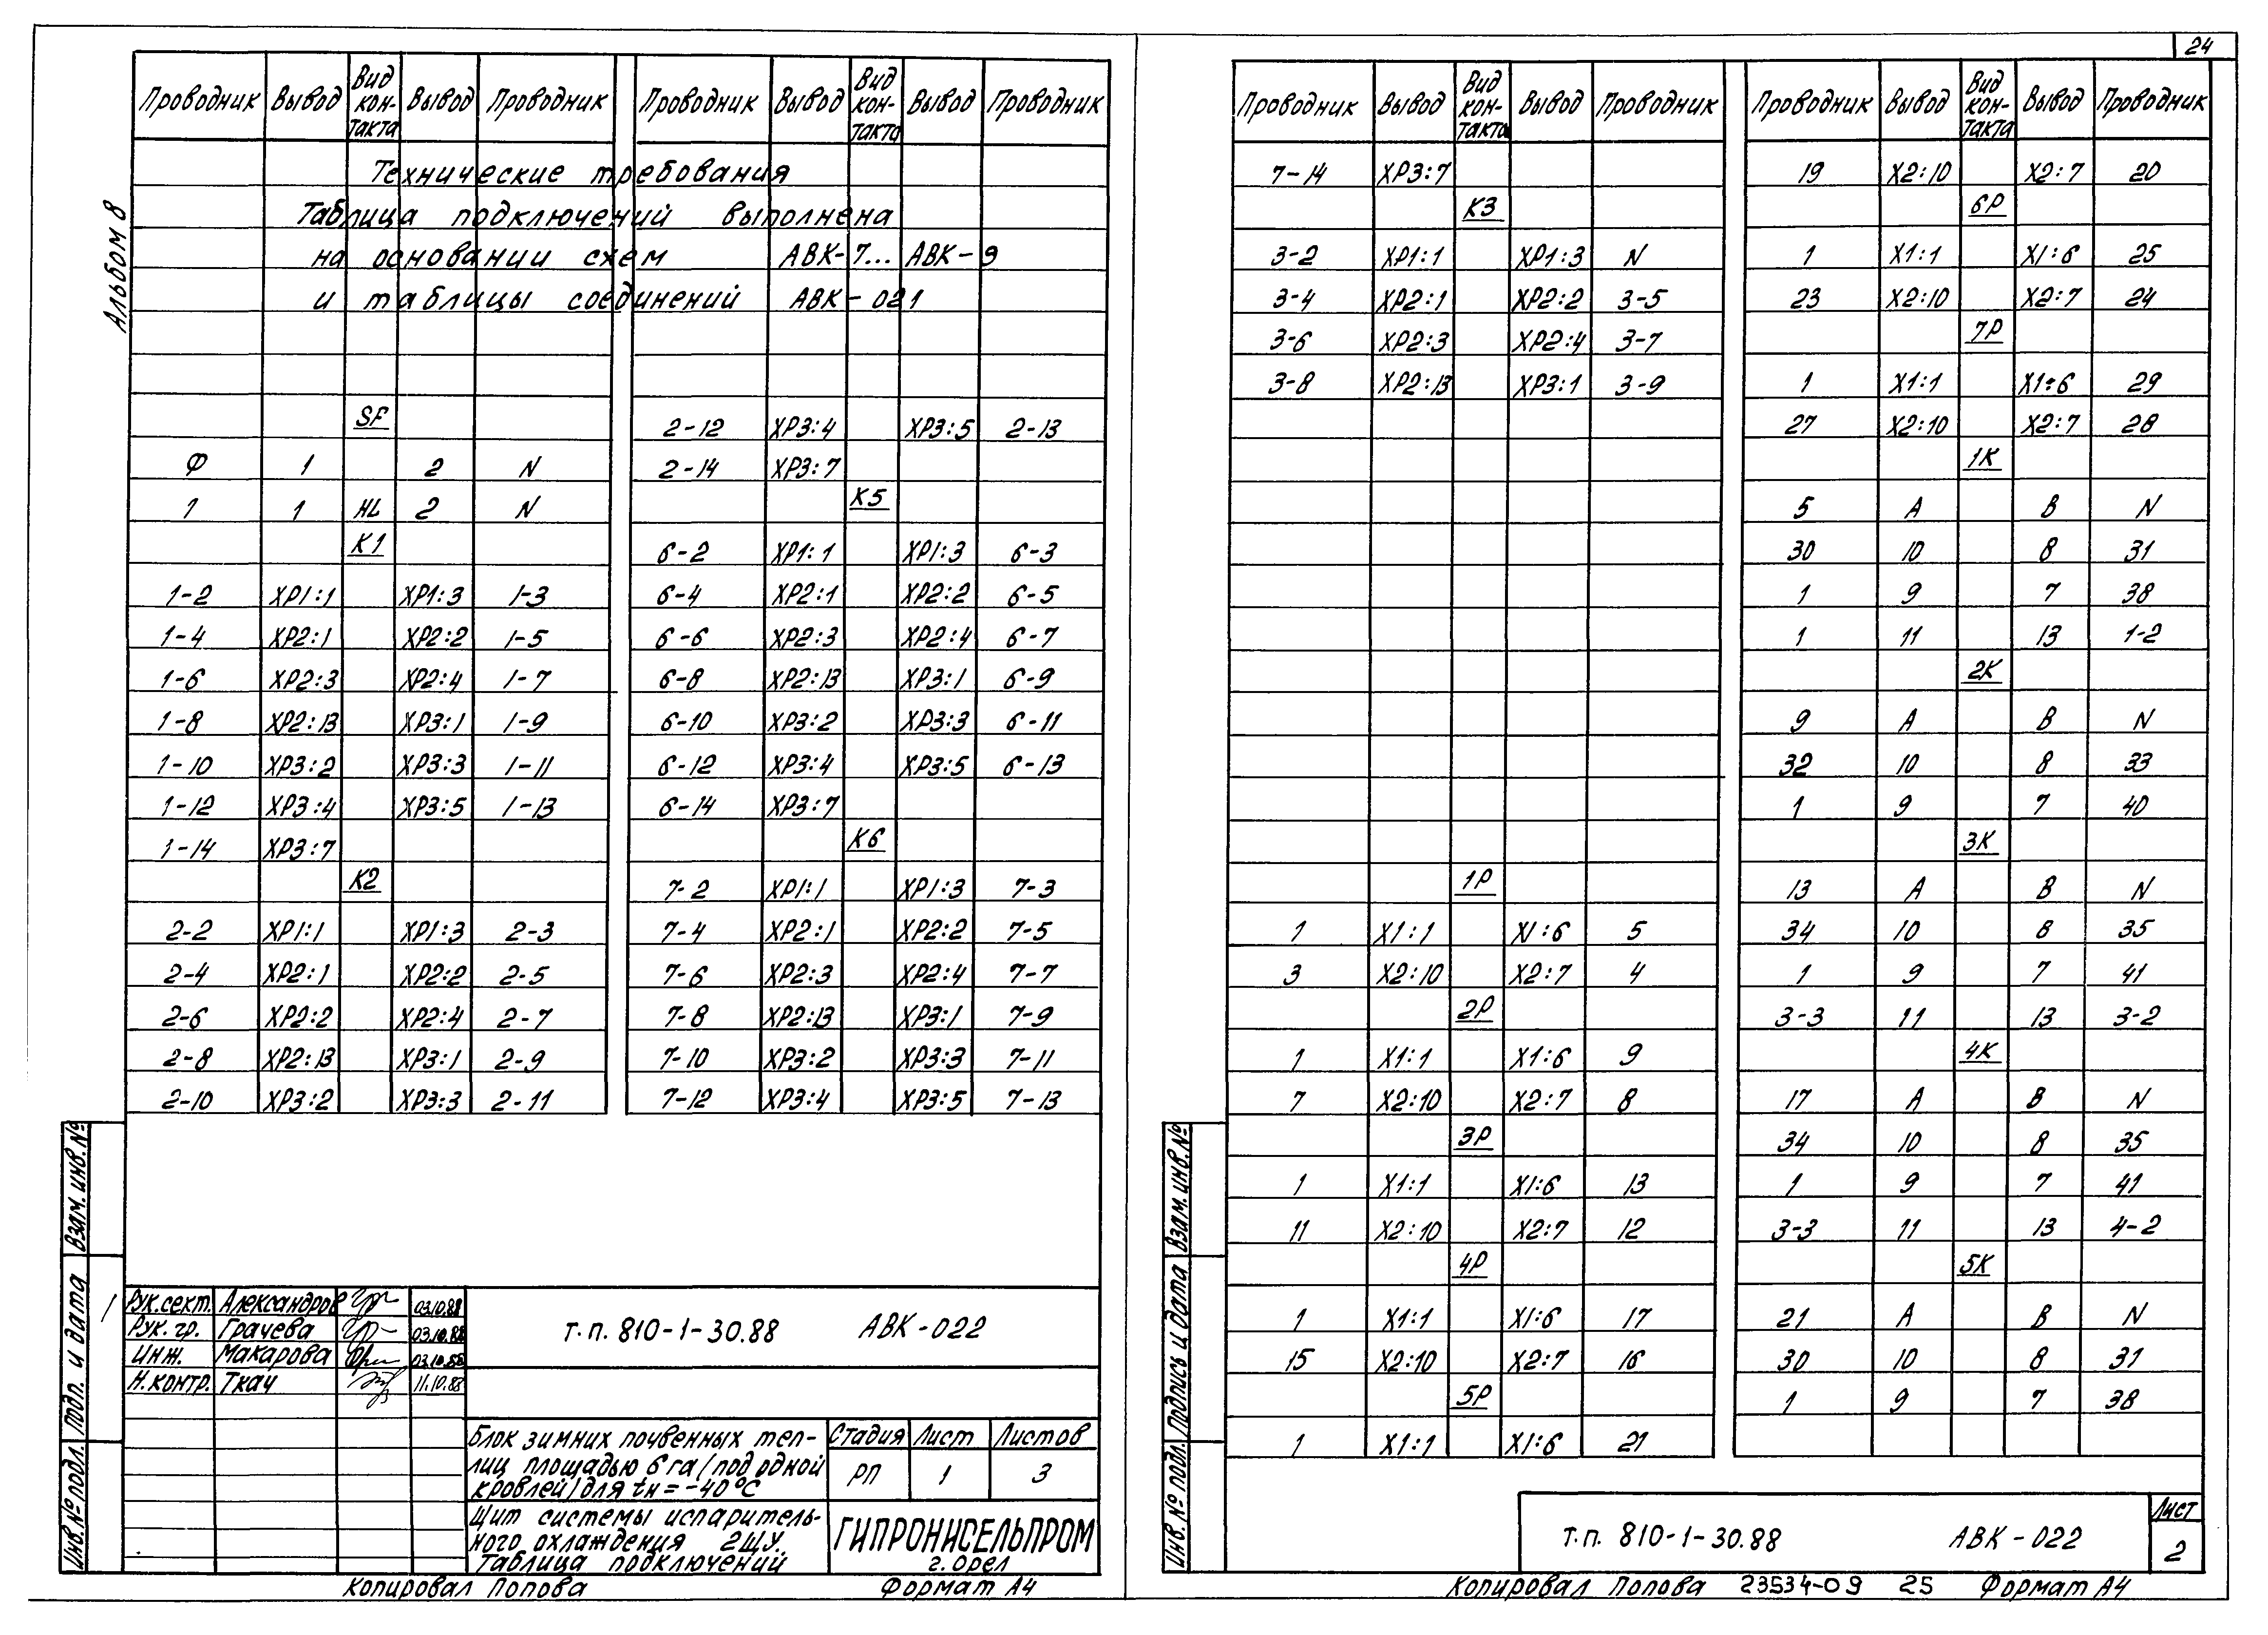 24
Альбом 8
Проводник Вывод Вид кон-такта Вывод Проводник
Технические требования
Таблица подключений выполнена
на основании схем АВК-7... АВК-9
и таблицы соединений АВК-021
SF
Ф 1 2 N
1 1 HL 2 N
K1
1-2 XP1:1 XP1:3 1-3
1-4 XP2:1 XP2:2 1-5
1-6 XP2:3 XP2:4 1-7
1-8 XP2:13 XP3:1 1-9
1-10 XP3:2 XP3:3 1-11
1-12 XP3:4 XP3:5 1-13
1-14 XP3:7
K2
2-2 XP1:1 XP1:3 2-3
2-4 XP2:1 XP2:2 2-5
2-6 XP2:2 XP2:4 2-7
2-8 XP2:13 XP3:1 2-9
2-10 XP3:2 XP3:3 2-11
Проводник Вывод Вид кон-такта Вывод Проводник
2-12 XP3:4 XP3:5 2-13
2-14 XP3:7
K5
6-2 XP1:1 XP1:3 6-3
6-4 XP2:1 XP2:2 6-5
6-6 XP2:3 XP2:4 6-7
6-8 XP2:13 XP3:1 6-9
6-10 XP3:2 XP3:3 6-11
6-12 XP3:4 XP3:5 6-13
6-14 XP3:7
K6
7-2 XP1:1 XP1:3 7-3
7-4 XP2:1 XP2:2 7-5
7-6 XP2:3 XP2:4 7-7
7-8 XP2:13 XP3:1 7-9
7-10 XP3:2 XP3:3 7-11
7-12 XP3:4 XP3:5 7-13
Взам. инв. №
Подп. и дата
Инв. № подл.
Рук. сект. Александров 03.10.88
Рук. гр. Грачева 03.10.88
Инж. Макарова 03.10.88
Н. контр. Ткач 11.10.88
т.п. 810-1-30.88 АВК-022
Блок зимних почвенных теп-
лиц площадью 6 га /под одной
кровлей/ для tн = -40°C
Стадия Лист Листов
РП 1 3
Щит системы испаритель-
ного охлаждения 2ЩУ.
Таблица подключений
ГИПРОНИСЕЛЬПРОМ
г. Орел
Копировал Попова Формат А4
Проводник Вывод Вид кон-такта Вывод Проводник
7-14 XP3:7
K3
3-2 XP1:1 XP1:3 N
3-4 XP2:1 XP2:2 3-5
3-6 XP2:3 XP2:4 3-7
3-8 XP2:13 XP3:1 3-9
1P
1 X1:1 X1:6 5
3 X2:10 X2:7 4
2P
1 X1:1 X1:6 9
7 X2:10 X2:7 8
3P
1 X1:1 X1:6 13
11 X2:10 X2:7 12
4P
1 X1:1 X1:6 17
15 X2:10 X2:7 16
5P
1 X1:1 X1:6 21
Проводник Вывод Вид кон-такта Вывод Проводник
19 X2:10 X2:7 20
6P
1 X1:1 X1:6 25
23 X2:10 X2:7 24
7P
1 X1:1 X1:6 29
27 X2:10 X2:7 28
1K
5 A B N
30 10 8 31
1 9 7 38
1 11 13 1-2
2K
9 A B N
32 10 8 33
1 9 7 40
3K
13 A B N
34 10 8 35
1 9 7 41
3-3 11 13 3-2
4K
17 A B N
34 10 8 35
1 9 7 41
3-3 11 13 4-2
5K
21 A B N
30 10 8 31
1 9 7 38
Взам. инв. №
Подпись и дата
Инв. № подл.
т.п. 810-1-30.88 АВК-022
Лист
2
Копировал Попова 23534-09 25 Формат А4